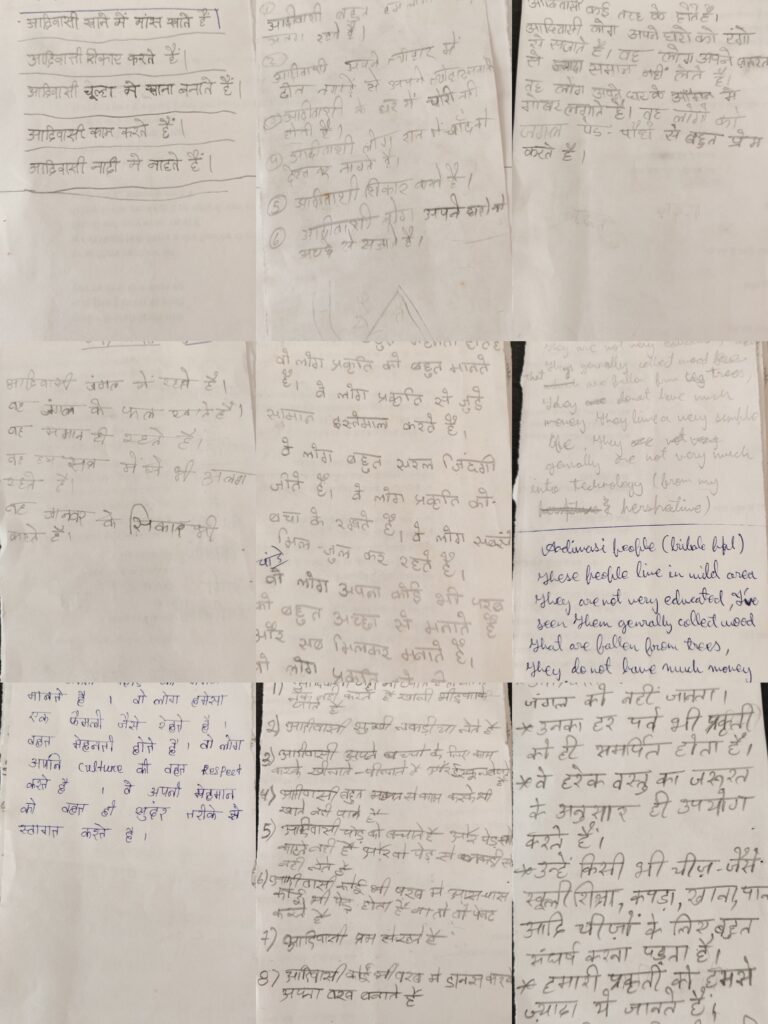 आदिवासी खाने में मांस खाते हैं।
आदिवासी शिकार करते हैं।
आदिवासी चूल्हा में खाना बनाते हैं।
आदिवासी काम करते हैं।
आदिवासी नाद्दी में नाहते हैं।
आदीवासी बहुत
रहते हैं।
②
आदीवासी अपने त्योहार में
आदीवासी के घर में चोरी नही
होती है।
आदीवासी लोग रात में चाँद को
⑤ आदीवासी शिकार करते हैं।
⑥ आदीवासी लोग अपने
आदिवासी कई तरह के होते हैं।
आदिवासी लोग अपने घरो को रंगो
से सजाते हैं। वह लोग अपने जरूरत
से ज्यादा समान नहीं लेते हैं।
वह लोग अपने घर के
गोबर लगाते हैं। वह लोगो को
जंगल पेड़-पौधो से बहुत प्रेम
करते हैं।
आदिवासी जंगल में रहते हैं।
वह जंगल के फल खाते हैं।
वह समान ही रहते हैं।
वह हम सब में से भी अलग
रहते हैं।
वह जानवर के सिकार भी
करते हैं।
वो लोग प्रकृति को बहुत मानते
हैं। वे लोग प्रकृति से जुड़े
सामान इस्तेमाल करते हैं।
वे लोग बहुत सरल जिंदगी
जीते हैं। वे लोग प्रकृति को
बचा के रखते हैं। वे लोग सबसे
मिल-जुल कर रहते हैं।
वो लोग अपना कोई भी परब
को बहुत अच्छा से मनाते हैं
और सब मिलकर मनाते हैं।
वो लोग प्रकृति
They are not very
genrally collect wood
are fallen from big trees,
They do not have much
money They live a very simple
life. They are not very
genrally are not very much
into technology (from my
Aadiwasi people (tribale ppl)
These people live in mild area
They are not very educated, I've
seen them genrally collect wood
that are fallen from trees,
They do not have much money
जानते हैं। वो लोग हमेसा
एक फैमली जैसे रहते हैं।
बहुत मेहनती होते हैं। वो लोग
अपनि culture की बहुत Respect
करते हैं। वे अपनी मेहमान
को बहुत ही सुंदर तरीके से
स्वागत करते हैं।
1)
2) आदीवासी सुखी लकड़ी चुनते हैं
3) आदीवासी अपने बच्चों के लिए काम
4) आदीवासी बहुत
5) आदीवासी पेड़ को बचाते हैं और पेड़ को
6) आदीवासी कोई भी परब में आस पास
कोई भी पेड़ होता है
करते हैं
7) आदीवासी प्रेम से रहते हैं
8) आदीवासी कोई भी परब में डानस करके
अपना परब बनाते हैं
जंगल को नहीं जानता।
* उनका हर पर्व भी प्रकृती
को ही समर्पित होता है।
* वे हरेक वस्तु का जरूरत
के अनुसार ही उपयोग
करते हैं।
* उन्हें किसी भी चीज़-जैसे
स्कूली शिक्षा, कपड़ा, खाना, पान
आदि चीज़ों के लिए बहुत
संघर्ष करना पड़ता है।
* हमारी प्रकृती को हमसे
ज़्यादा ये जानते हैं।